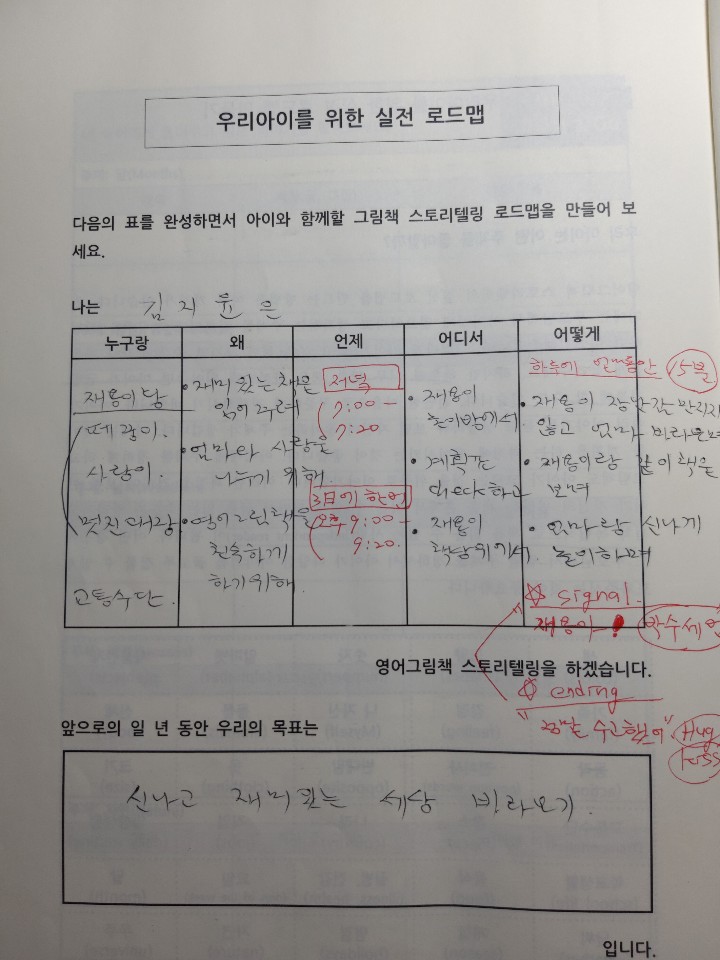 우리아이를 위한 실전 로드맵
다음의 표를 완성하면서 아이와 함께할 그림책 스토리텔링 로드맵을 만들어 보
세요.
나는 김지윤은
누구랑 왜 언제 어디서 어떻게
재용이랑
떼쟁이.
사랑이.
멋진대장.
교통수단.
• 재미있는 책을
읽어주려
• 엄마와 사랑을
나누기 위해.
• 영어그림책을
친숙하게
하기위해.
저녁
7:00 -
7:20
3日에 한번
오후 9:00 -
9:20.
• 재용이
놀이방에서
• 계획표
check하고
• 재용이
책상위에서.
하루에 얼마동안 15분
• 재용이 장난감 만지지
않고 엄마 바라보며
• 재용이랑 같이 책을
보며
• 엄마랑 신나게
놀이하며
☆ signal.
"재용아~! 박수세번
영어그림책 스토리텔링을 하겠습니다.
☆ ending
"정말 수고했어" Hug
kiss
앞으로의 일 년 동안 우리의 목표는
신나고 재미있는 세상 바라보기.
입니다.